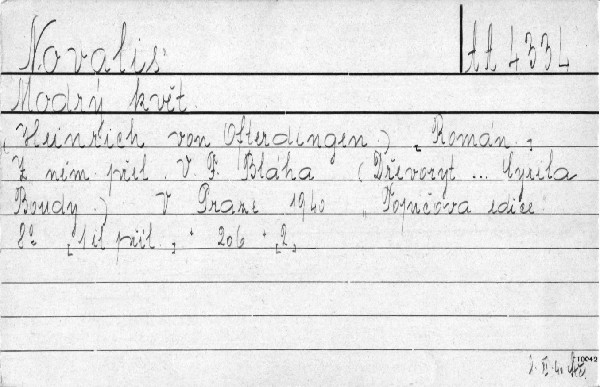 Novalis
AA 4334
Modrý květ.
„Heinrich von Ofterdingen.) [Román.]
Z něm. přel. V. F. Bláha (Dřevoryt ... Cyrila
Boudy.) V Praze 1940 Pojerova edice
8° [1 il. příl.] + 206 + [2]
10042